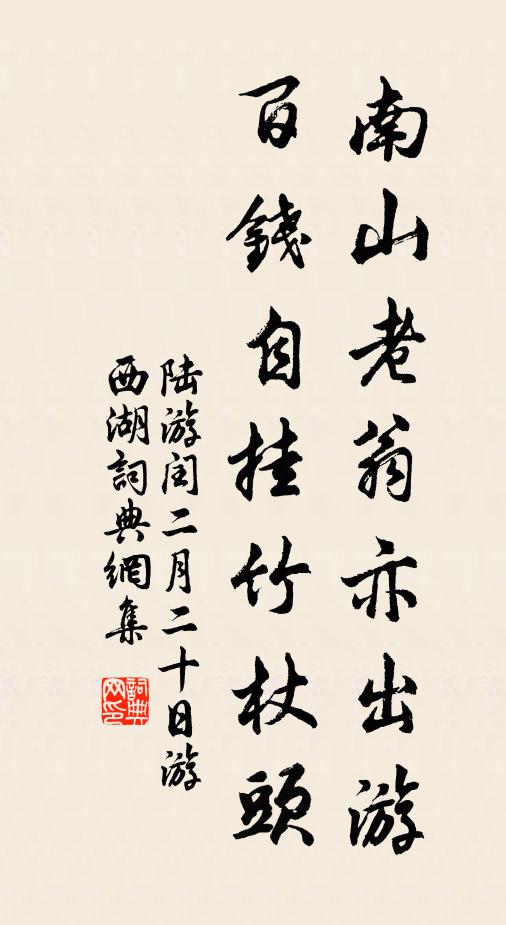 南山老翁亦出游
百錢自挂竹杖頭
陆游闰二月二十日游
西湖詞典網集
詞典
网印